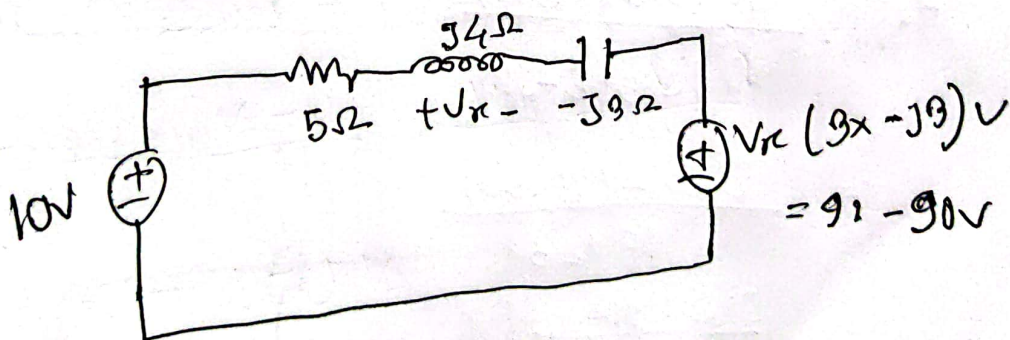 J4Ω
5Ω +Vx- -J3Ω
10V + - + - Vx (3x -J3) V
= 91 -90V